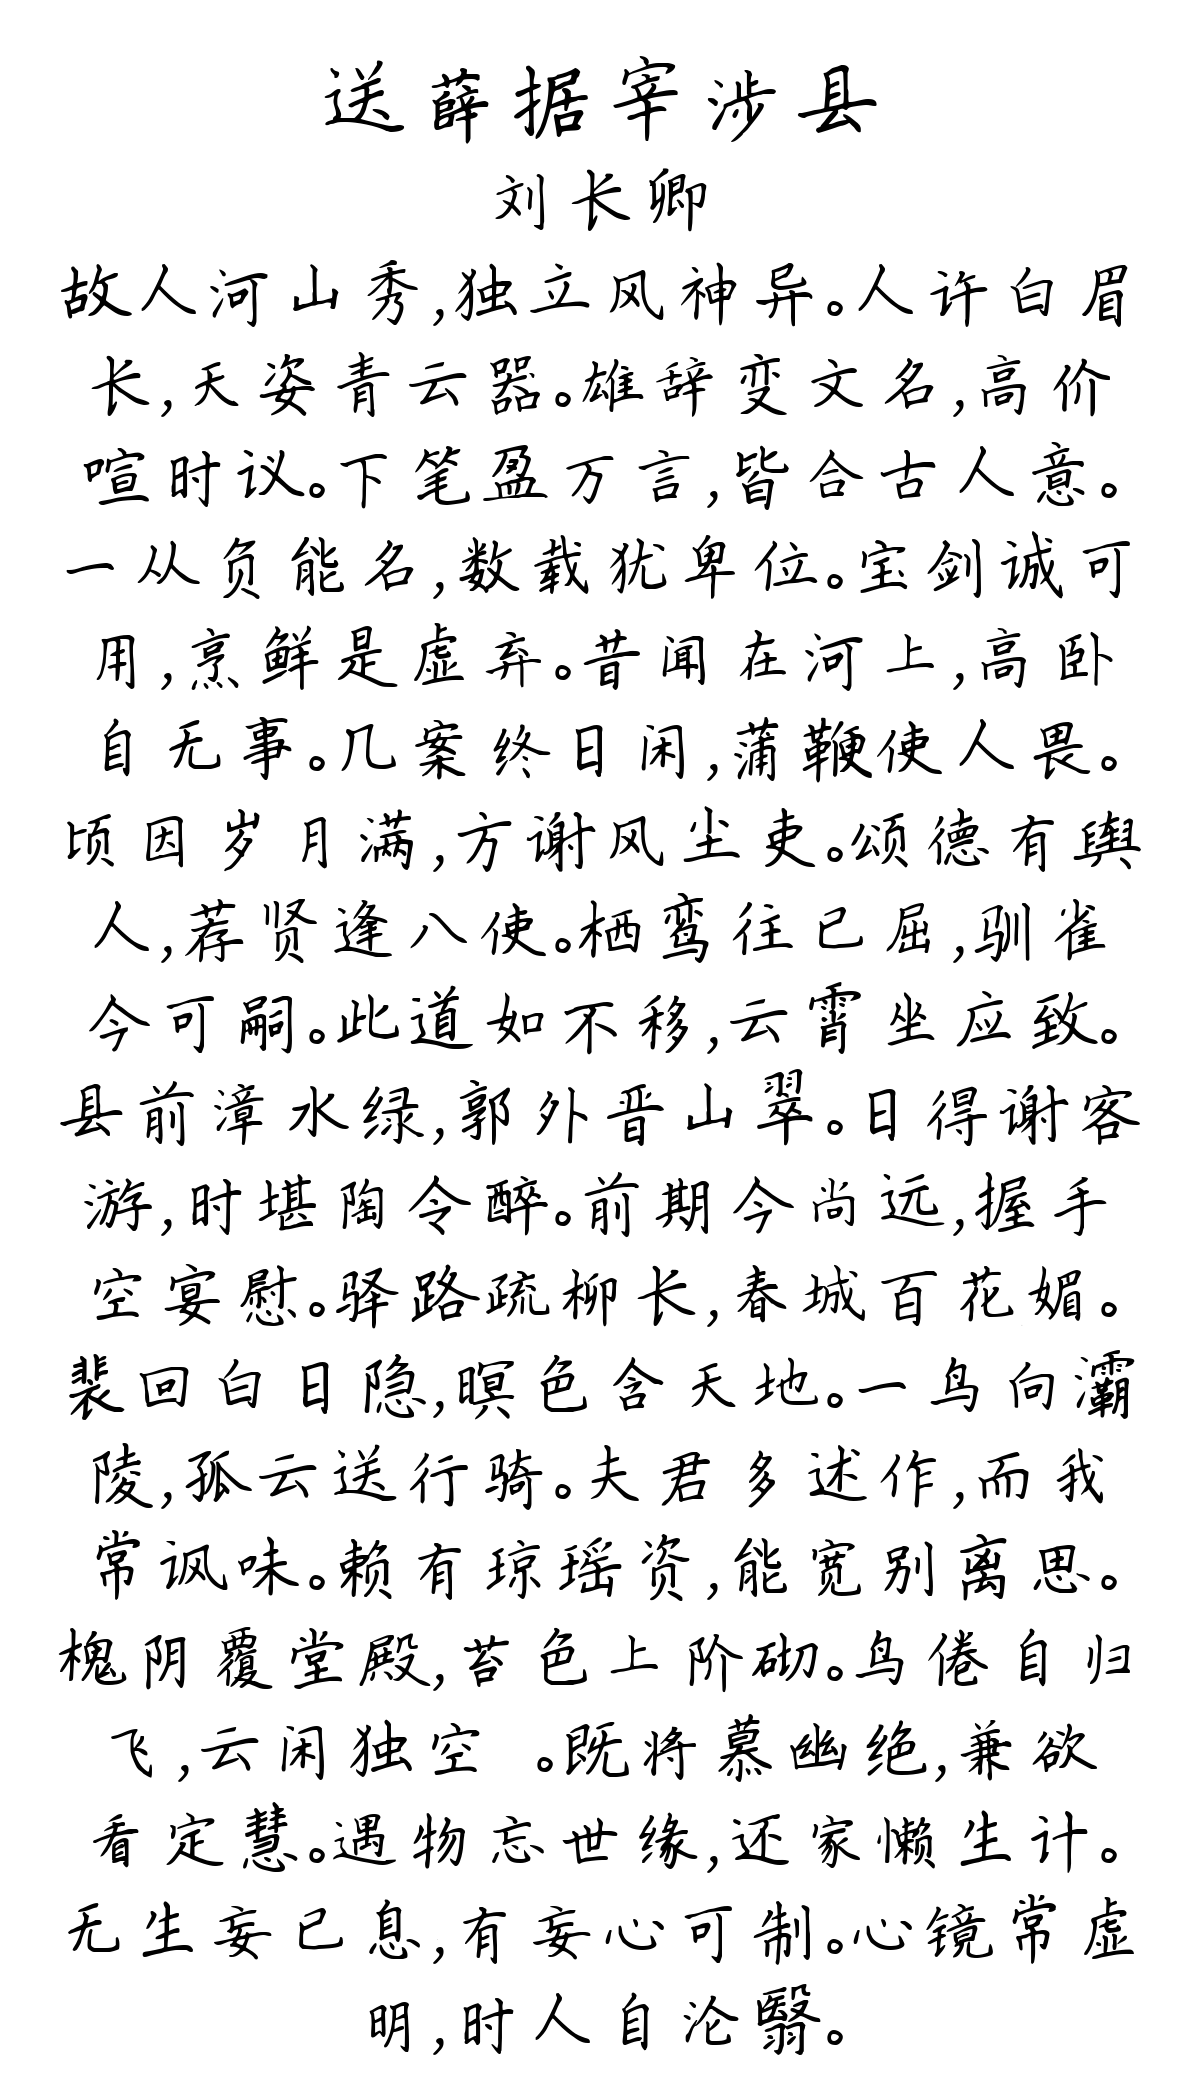 送薛据宰涉县
刘长卿
故人河山秀,独立风神异。人许白眉
长,天姿青云器。雄辞变文名,高价
喧时议。下笔盈万言,皆合古人意。
一从负能名,数载犹卑位。宝剑诚可
用,烹鲜是虚弃。昔闻在河上,高卧
自无事。几案终日闲,蒲鞭使人畏。
顷因岁月满,方谢风尘吏。颂德有舆
人,荐贤逢八使。栖鸾往已屈,驯雀
今可嗣。此道如不移,云霄坐应致。
县前漳水绿,郭外晋山翠。日得谢客
游,时堪陶令醉。前期今尚远,握手
空宴慰。驿路疏柳长,春城百花媚。
裴回白日隐,暝色含天地。一鸟向灞
陵,孤云送行骑。夫君多述作,而我
常讽味。赖有琼瑶资,能宽别离思。
槐阴覆堂殿,苔色上阶砌。鸟倦自归
飞,云闲独空 。既将慕幽绝,兼欲
看定慧。遇物忘世缘,还家懒生计。
无生妄已息,有妄心可制。心镜常虚
明,时人自沦翳。